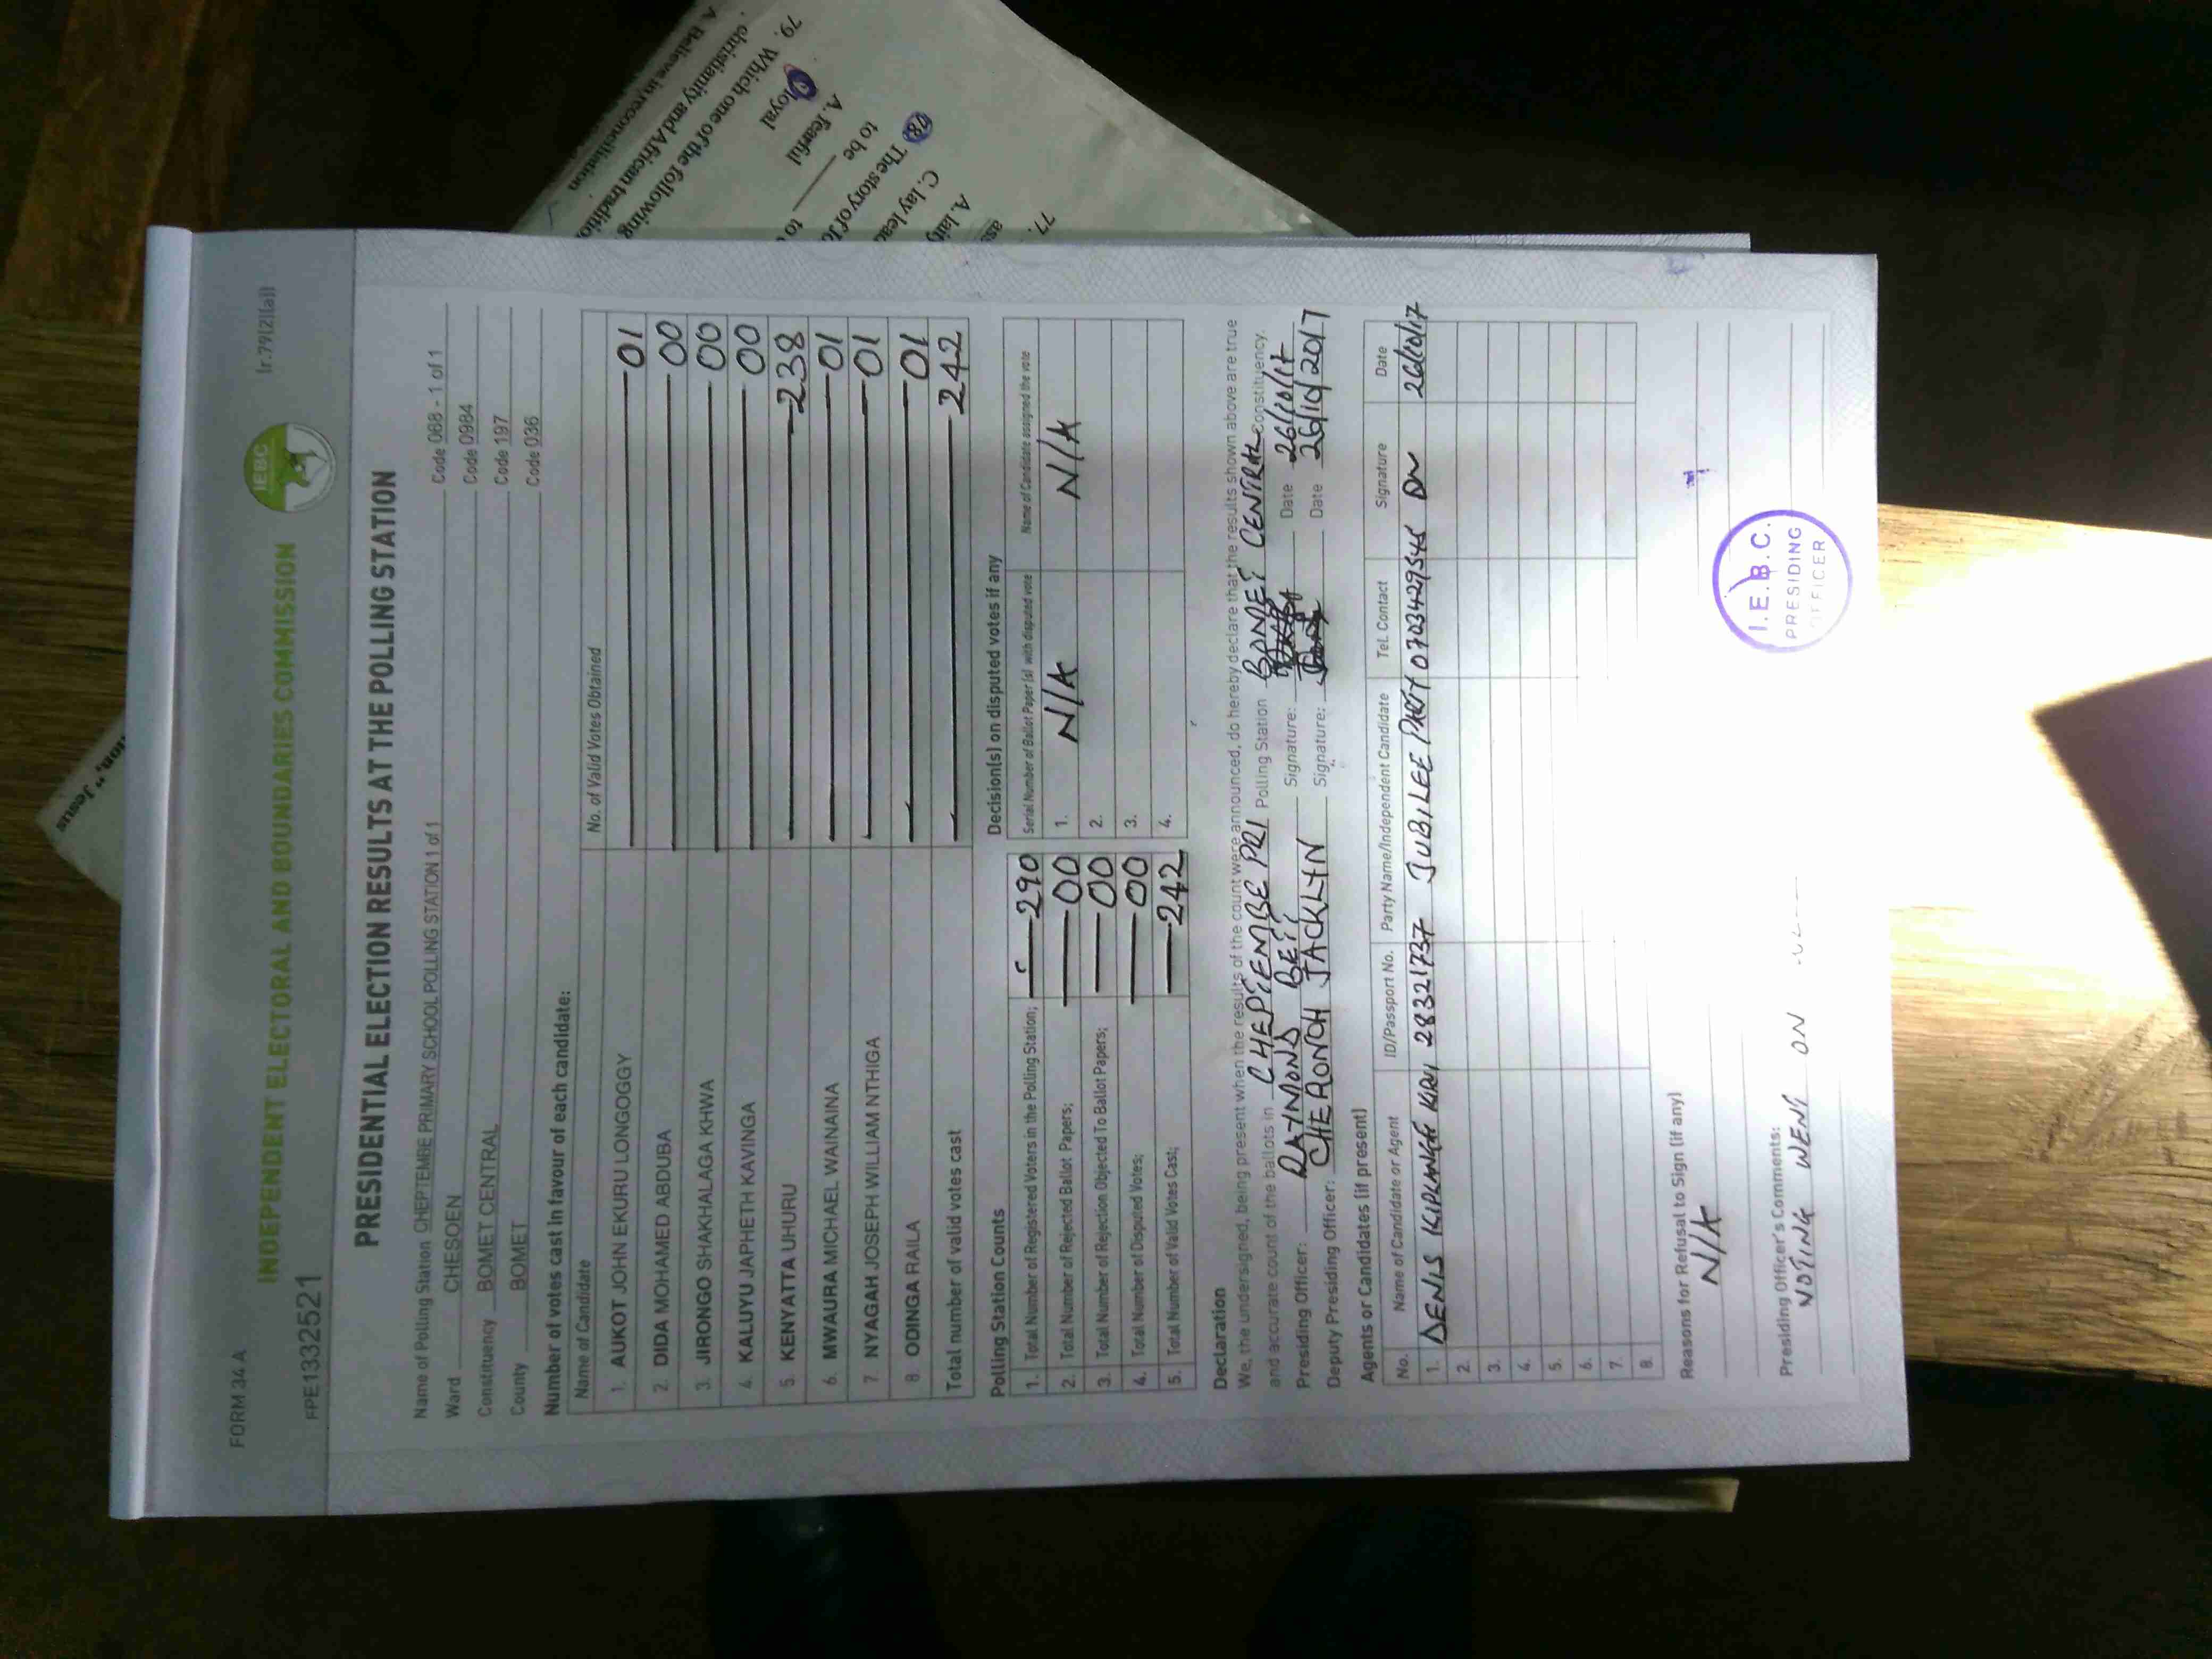 FORM 34 A
(r.79(2)(a))
INDEPENDENT ELECTORAL AND BOUNDARIES COMMISSION
IEBC
FPE1332521
PRESIDENTIAL ELECTION RESULTS AT THE POLLING STATION
Name of Polling Station CHEPTEMBE PRIMARY SCHOOL POLLING STATION 1 of 1 Code 088 - 1 of 1
Ward CHESOEN Code 0984
Constituency BOMET CENTRAL Code 197
County BOMET Code 036
Number of votes cast in favour of each candidate:
Name of Candidate No. of Valid Votes Obtained
1. AUKOT JOHN EKURU LONGOGGY 01
2. DIDA MOHAMED ABDUBA 00
3. JIRONGO SHAKHALAGA KHWA 00
4. KALUYU JAPHETH KAVINGA 00
5. KENYATTA UHURU 238
6. MWAURA MICHAEL WAINAINA 01
7. NYAGAH JOSEPH WILLIAM NTHIGA 01
8. ODINGA RAILA 01
Total number of valid votes cast 242
Polling Station Counts
1. Total Number of Registered Voters in the Polling Station; 290
2. Total Number of Rejected Ballot Papers; 00
3. Total Number of Rejection Objected To Ballot Papers; 00
4. Total Number of Disputed Votes; 00
5. Total Number of Valid Votes Cast; 242
Decision(s) on disputed votes if any
Serial Number of Ballot Paper (s) with disputed vote Name of Candidate assigned the vote
1. N/A N/A
2.
3.
4.
Declaration
We, the undersigned, being present when the results of the count were announced, do hereby declare that the results shown above are true
and accurate count of the ballots in CHEPTEMBE PRI Polling Station BOMET CENTRAL Constituency.
Presiding Officer: RAYMOND Signature: Date 26/10/17
Deputy Presiding Officer: CHERONOH JACKLYN Signature: Date 26/10/2017
Agents or Candidates (if present)
No. Name of Candidate or Agent ID/Passport No. Party Name/Independent Candidate Tel. Contact Signature Date
1. DENIS KIPLANGAT 28321737 JUBILEE PARTY 26/10/17
2.
3.
4.
5.
6.
7.
8.
Reasons for Refusal to Sign (if any)
N/A
Presiding Officer's Comments:
VOTING WENT ON
I.E.B.C.
PRESIDING
OFFICER
77.
A. laity
C. lay lead
78. The story of Jo
to be ____ to
A. fearful
loyal
79. Which one of the following
christianity and African traditio
A. Believe in reconciliation
tion," Jesus